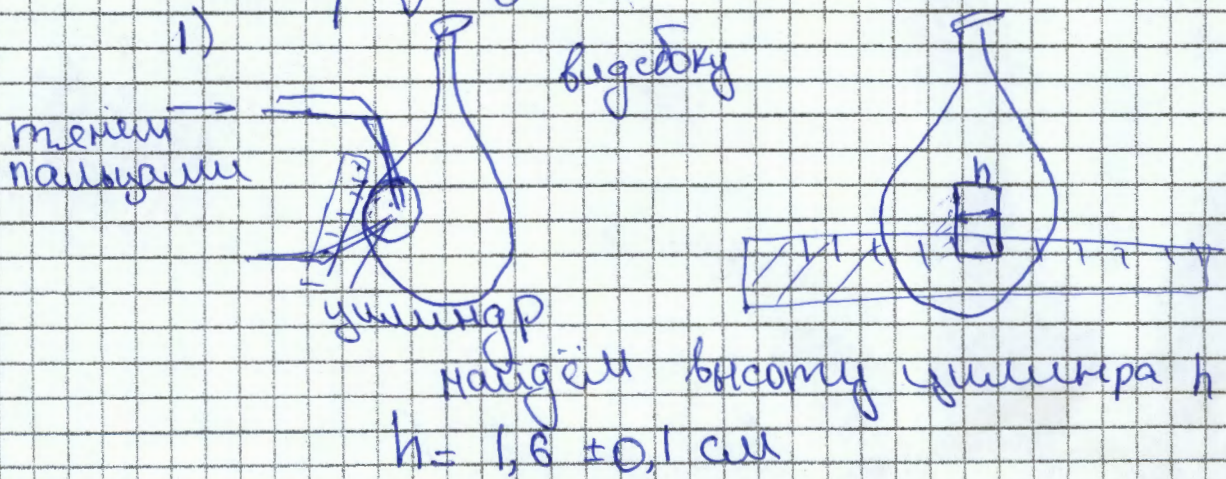 1)
видсбоку
тянем
пальцами
цилиндр
h
найдём высоту цилинра h
h = 1,6 ±0,1 см